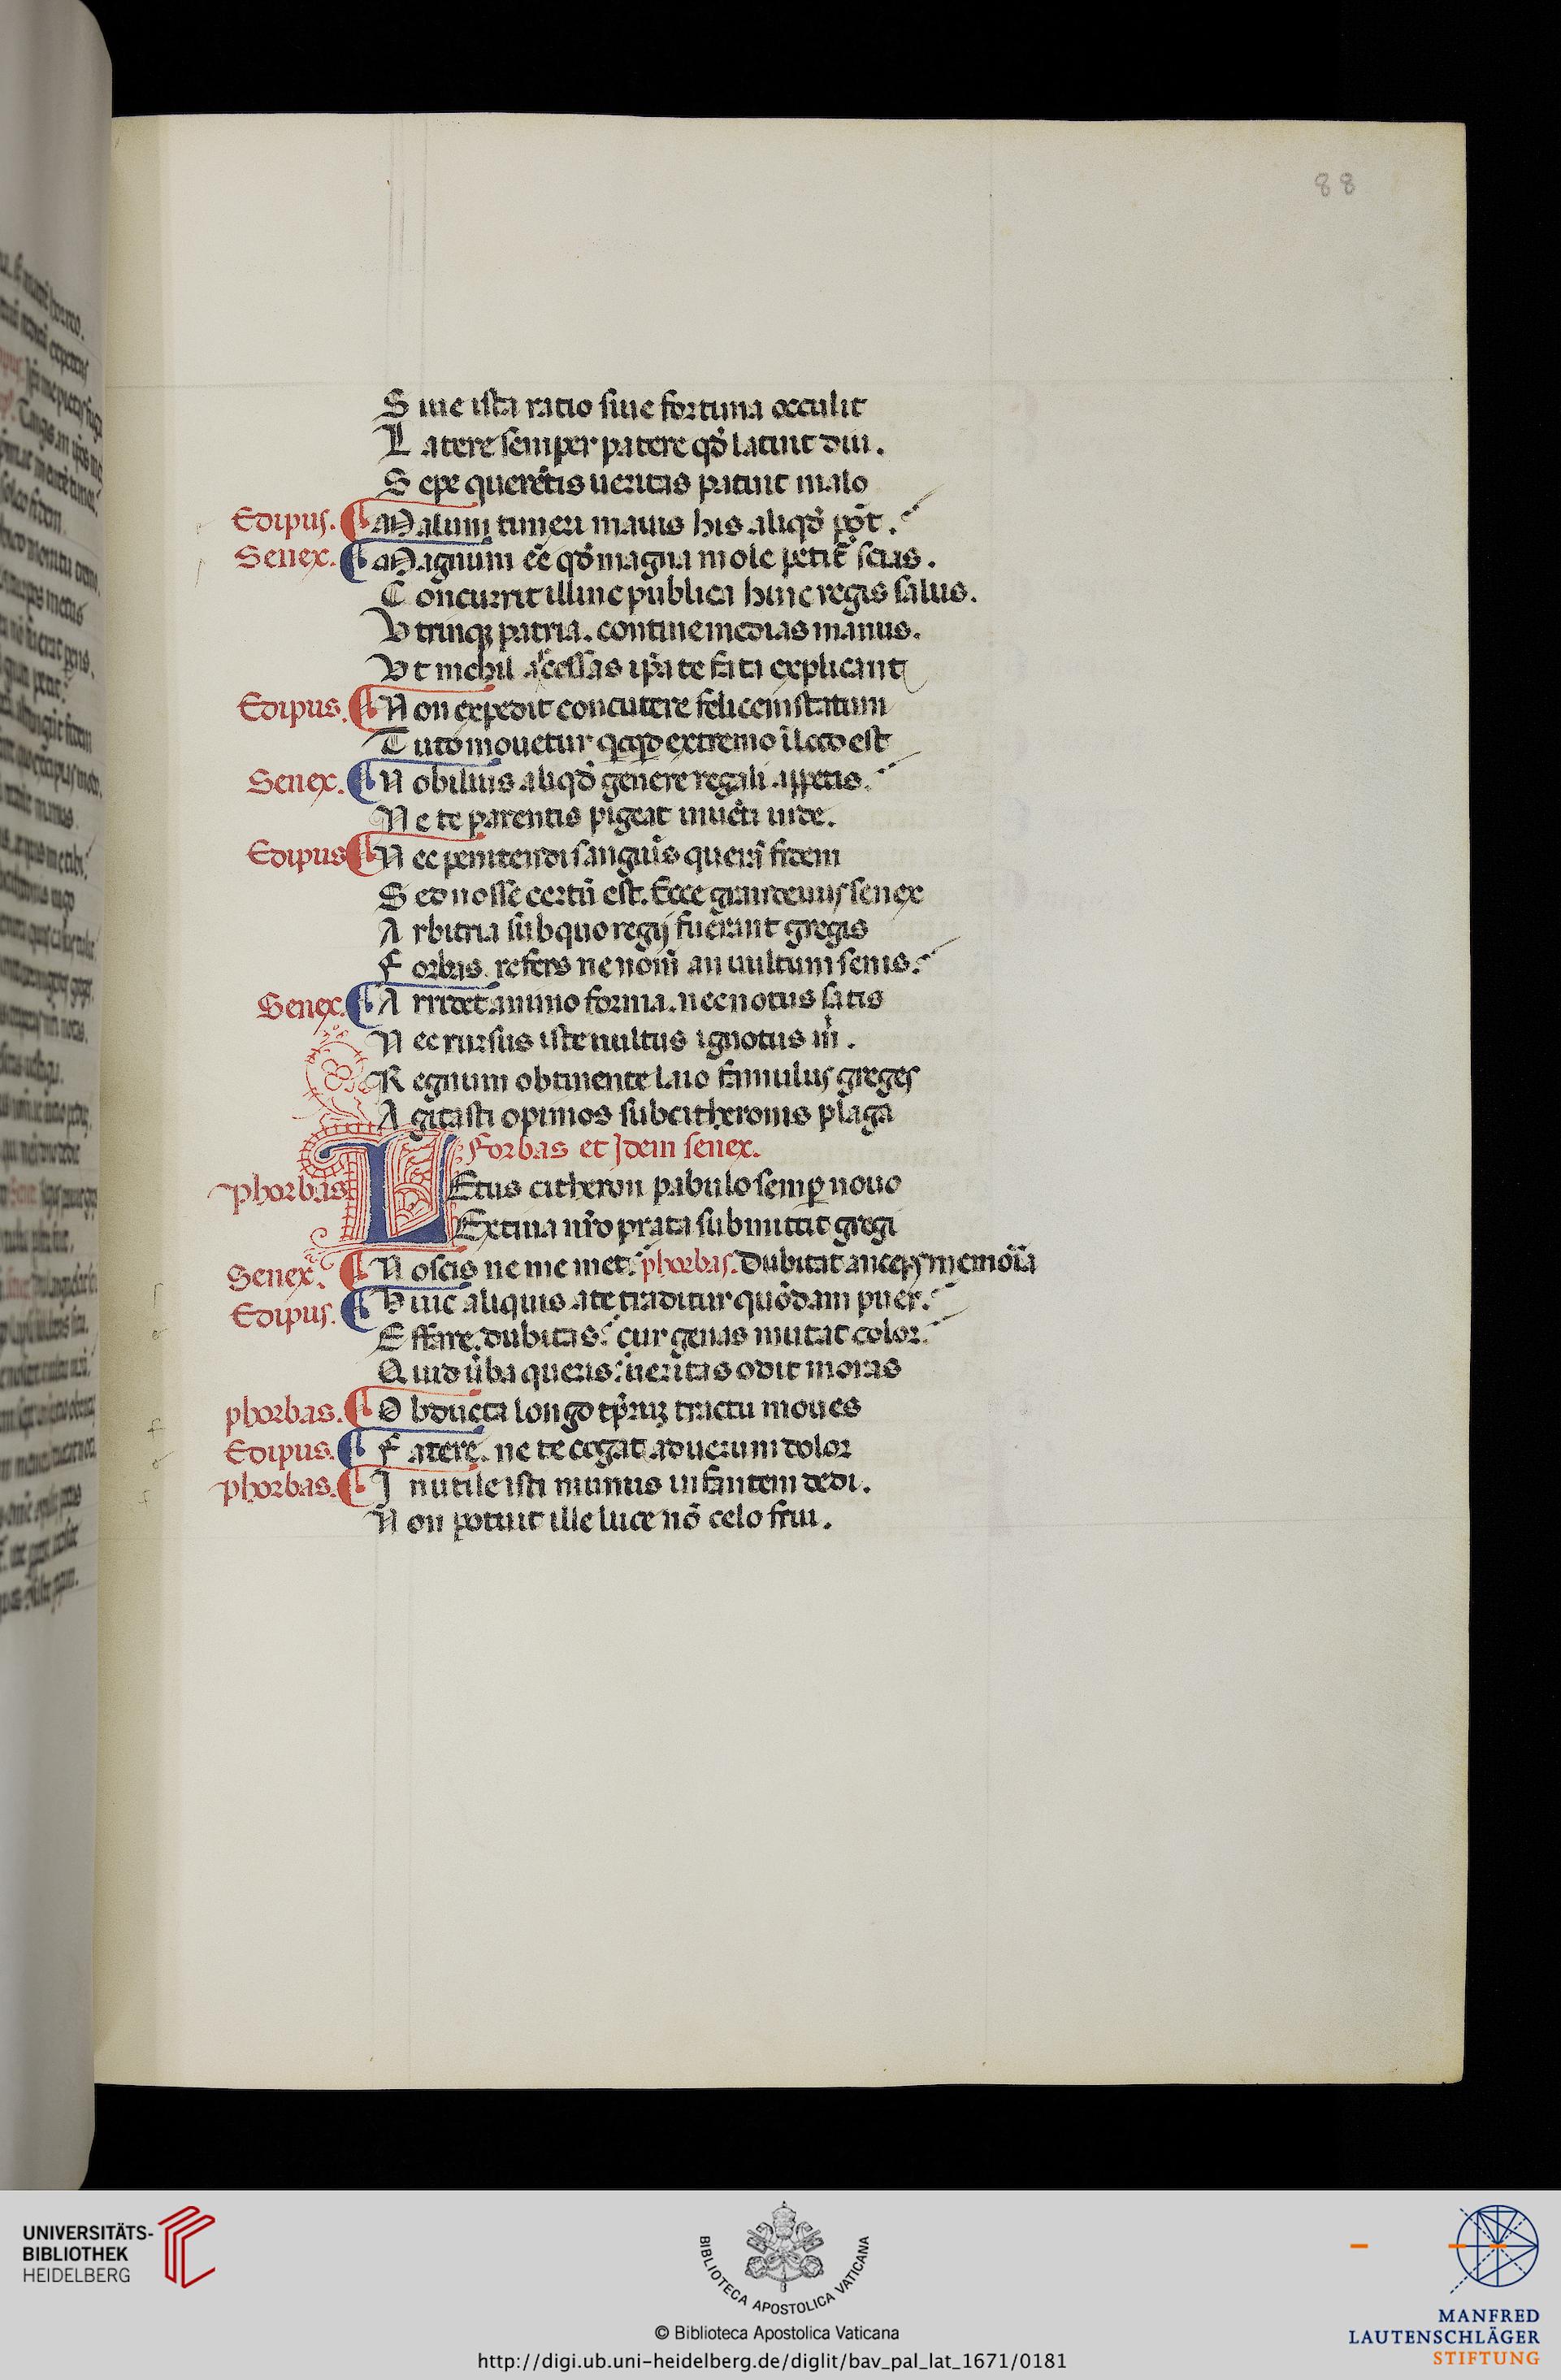 88
S iue ista ratio siue fortuna occulit
L atere semper patere qd̓ latuit diu.
S epe querẽtis ueritas patuit malo
Edipus. Malum timeri maius his aliqd̓ põt.
Senex. Magnum eẽ qd̓ magna mole petit᷑ scias.
C oncurrit illinc publica hinc regis salus.
V trinqꝫ patria. contine medias manus.
Vt nichil acessas ip̃a te fata explicant
Edipus. N on expedit concutere felicem statum
T uto mouetur qͥcqͥd extremo ĩ loco est
Senex. N obilius aliqd̓ genere regali appetis.
N e te parentis pigeat inuẽti uide.
Edipus N ec penitendi sanguĩs querã fidem
S ed nosse certũ est. Ecce grandeuus senex
A rbitria sub quo regij fuerant gregis
F orbas. refers ne nom̃ an uultum senis.
Senex. A rridet animo forma. nec notus satis
N ec rursus iste uultus ignotus m̃.
R egnum obtinente laio famulus greges
A gitasti opimos sub citheronis plaga
Forbas et Idem senex.
phorbas LEtus citheron pabulo semꝑ nouo
Extiua nr̃o prata submittit gregi
Senex. N oscis ne memet. phorbas. Dubitat anceps memoĩa
Edipus. H uic aliquis a te traditur quõdam puer.
E ffare. dubitas. cur genas mutat color.
Q uid ũba queris. ueritas odit moras
phorbas. O bducta longo tp̃rꝫ tractu moues
Edipus. F atere. ne te cogat ad uerum dolor
phorbas. I nutile isti munus infantem dedi.
N on potuit ille luce nõ celo frui.
UNIVERSITÄTS-
BIBLIOTHEK
HEIDELBERG
BIBLIOTECA APOSTOLICA VATICANA
© Biblioteca Apostolica Vaticana
http://digi.ub.uni-heidelberg.de/diglit/bav_pal_lat_1671/0181
MANFRED
LAUTENSCHLÄGER
STIFTUNG